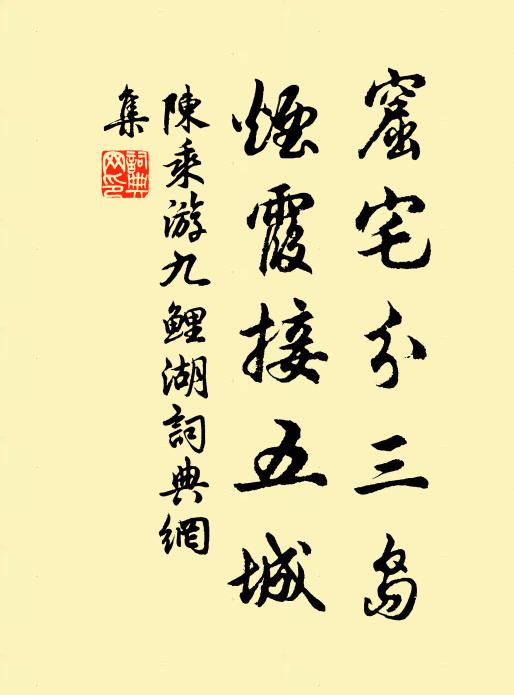 窟宅分三島
煙霞接五城
陳乘游九鯉湖詞典網
集
詞典
网印